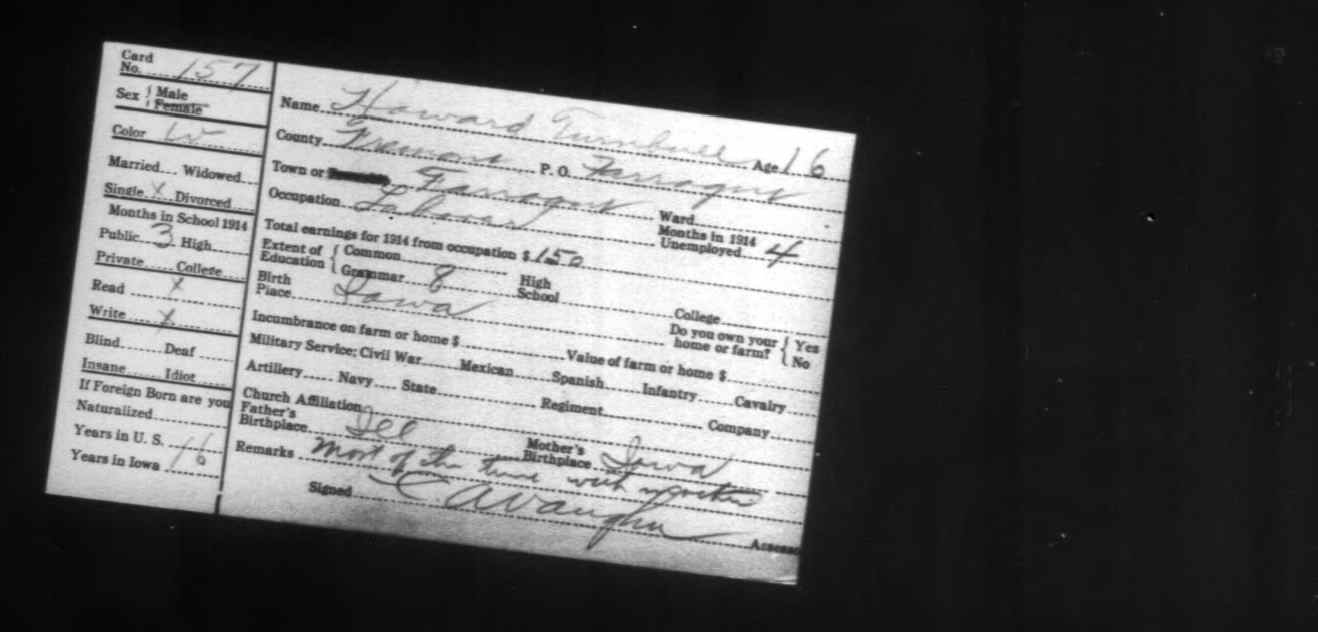 Card No. 157
Sex { Male
Female
Color W
Married Widowed
Single X Divorced
Months in School 1914
Public 3 High
Private College
Read X
Write X
Blind Deaf
Insane Idiot
If Foreign Born are you
Naturalized
Years in U. S.
Years in Iowa 16
Name Howard Turnbull Age 16
County Fremont P. O. Farragut
Town or Farragut Ward
Occupation Laborer Months in 1914 Unemployed 4
Total earnings for 1914 from occupation $ 150
Extent of Education { Common
Grammar 8 High School College
Birth Place Iowa Do you own your home or farm? { Yes No
Incumbrance on farm or home $ Value of farm or home $
Military Service: Civil War Mexican Spanish Infantry Cavalry
Artillery Navy State Regiment Company
Church Affiliation
Father's Birthplace Ill Mother's Birthplace Iowa
Remarks Most of the time with
Signed C A Vaughn Assessor